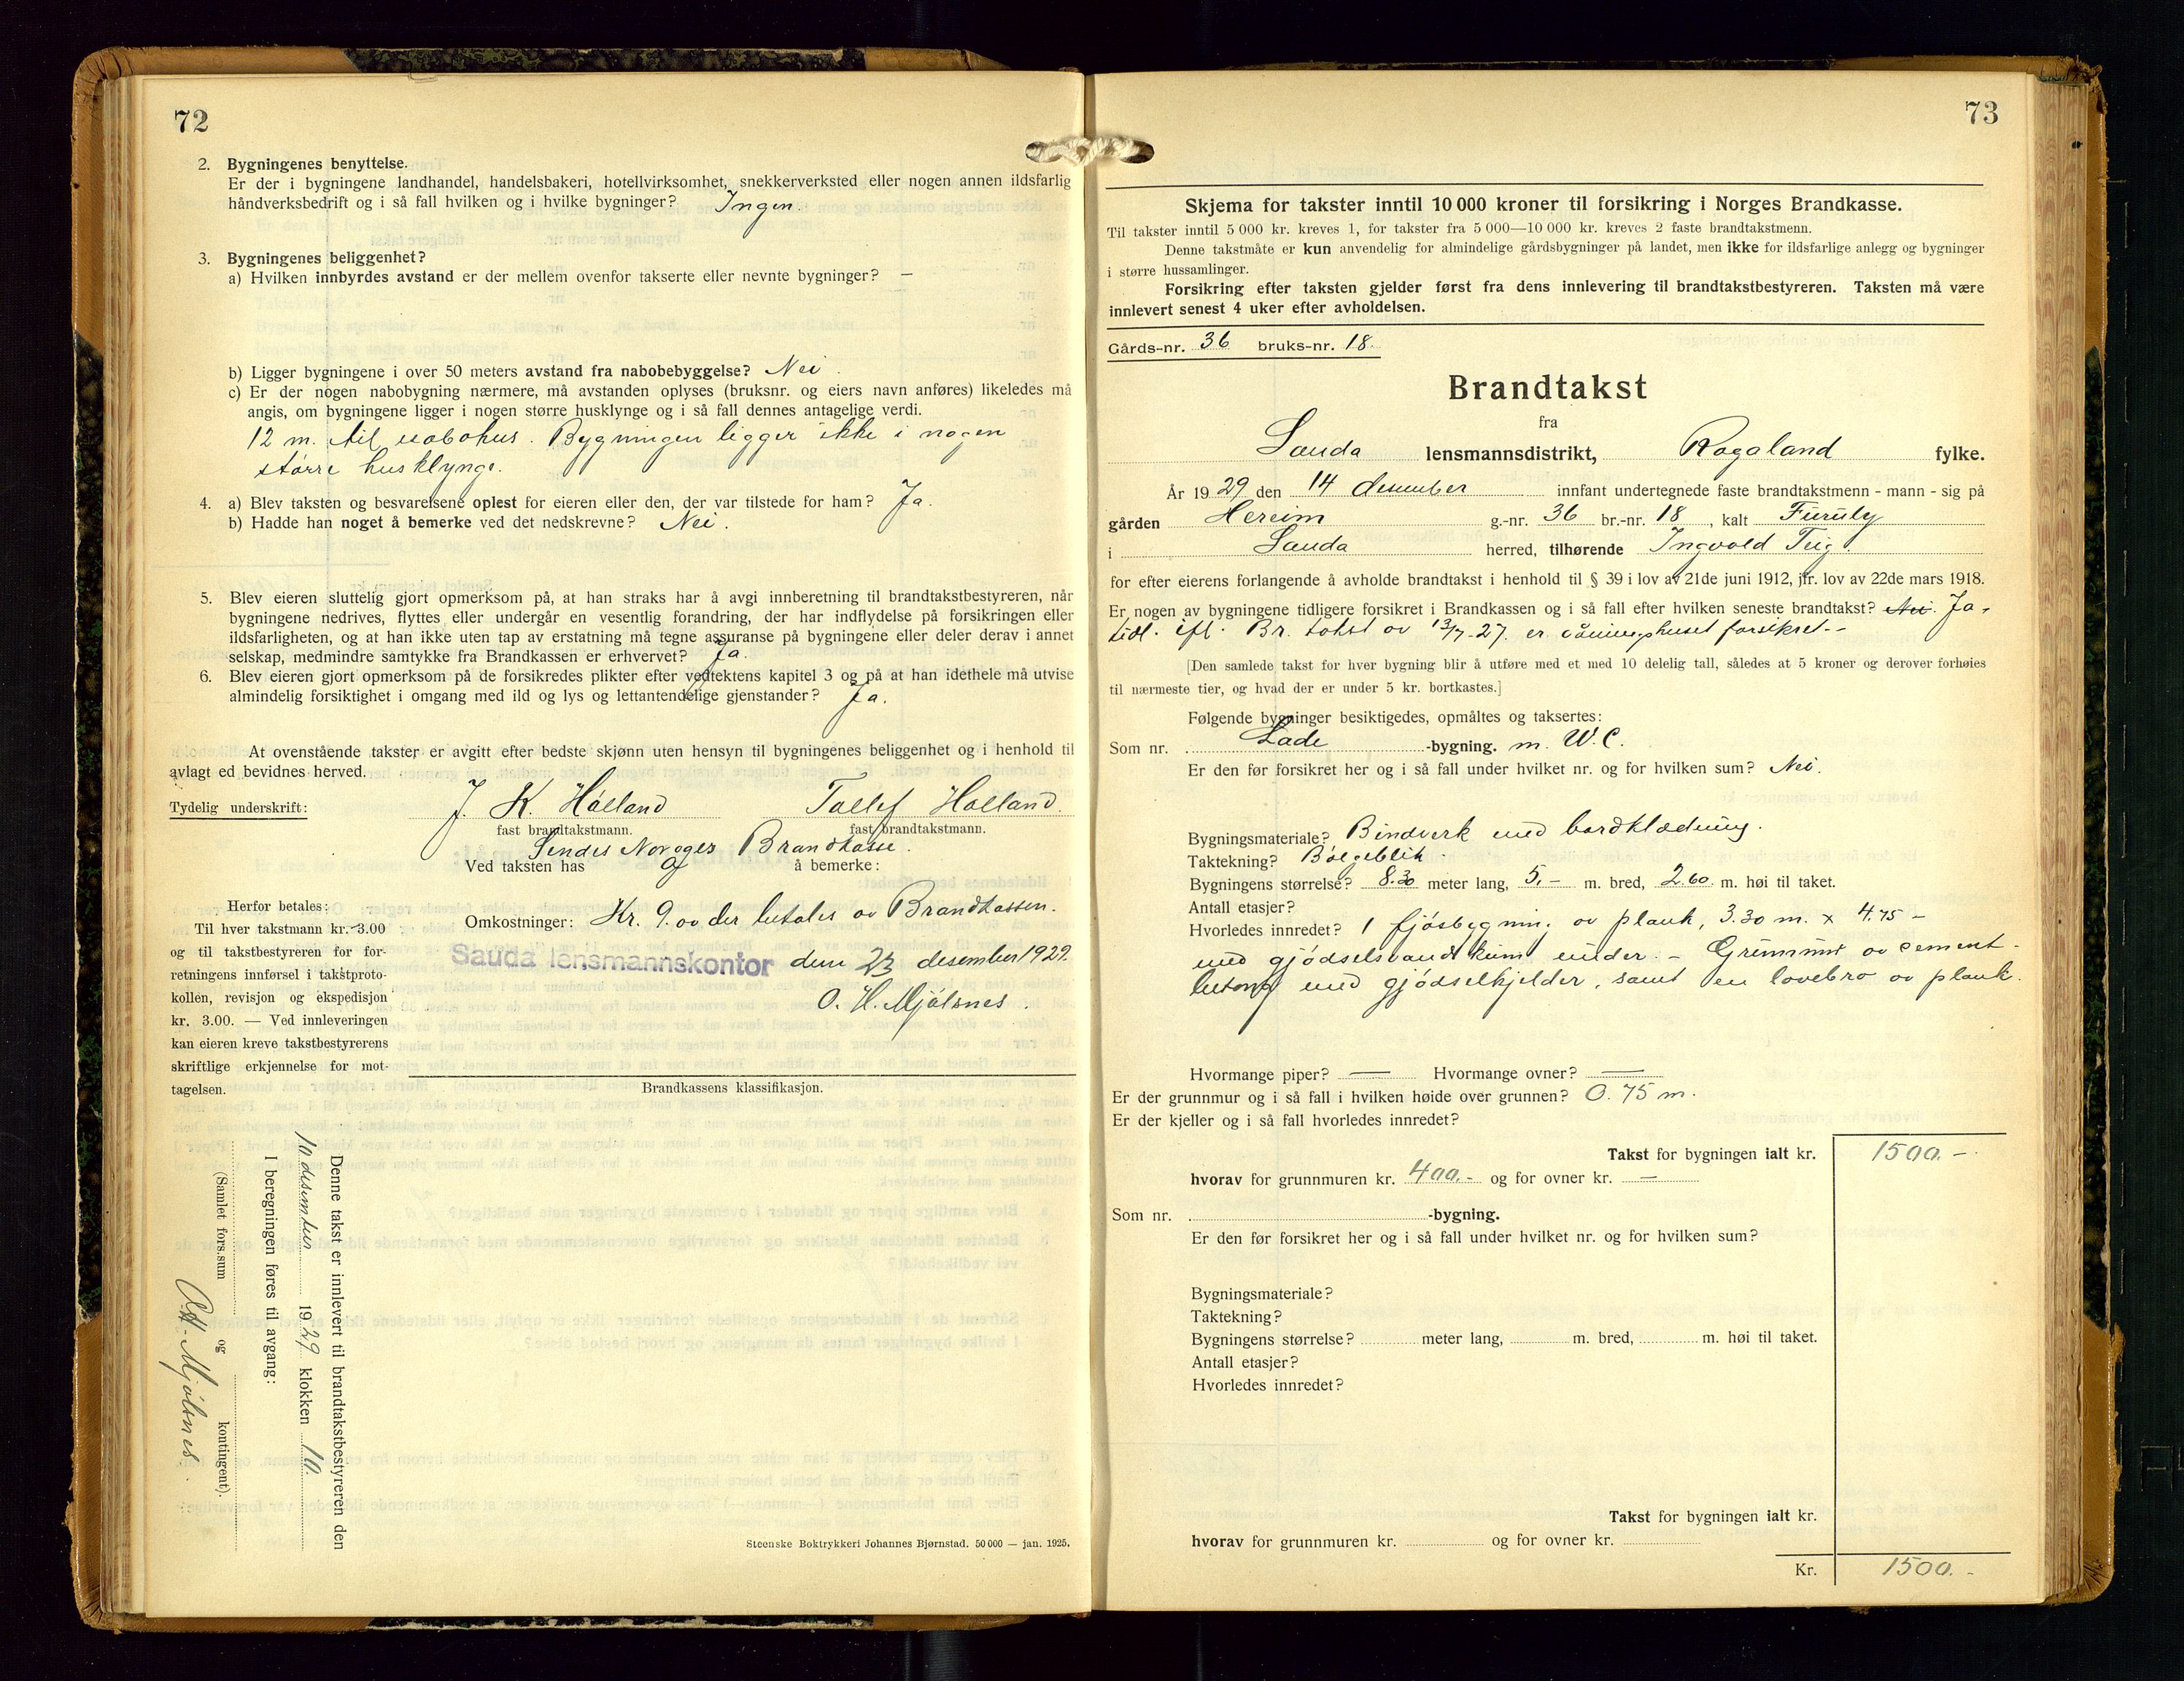 72
2. Bygningenes benyttelse.
Er der i bygningene landhandel, handelsbakeri, hotellvirksomhet, snekkerverksted eller nogen annen ildsfarlig
håndverksbedrift og i så fall hvilken og i hvilke bygninger? Ingen.
3. Bygningenes beliggenhet?
a) Hvilken innbyrdes avstand er der mellem ovenfor takserte eller nevnte bygninger? —
b) Ligger bygningene i over 50 meters avstand fra nabobebyggelse? Nei.
c) Er der nogen nabobygning nærmere, må avstanden oplyses (bruksnr. og eiers navn anføres) likeledes må
angis, om bygningene ligger i nogen større husklynge og i så fall dennes antagelige verdi.
12 m. til nabohus. Bygningen ligger ikke i nogen
større husklynge.
4. a) Blev taksten og besvarelsene oplest for eieren eller den, der var tilstede for ham? Ja.
b) Hadde han noget å bemerke ved det nedskrevne? Nei.
5. Blev eieren sluttelig gjort opmerksom på, at han straks har å avgi innberetning til brandtakstbestyreren, når
bygningene nedrives, flyttes eller undergår en vesentlig forandring, der har indflydelse på forsikringen eller
ildsfarligheten, og at han ikke uten tap av erstatning må tegne assuranse på bygningene eller deler derav i annet
selskap, medmindre samtykke fra Brandkassen er erhvervet? Ja.
6. Blev eieren gjort opmerksom på de forsikredes plikter efter vedtektens kapitel 3 og på at han idethele må utvise
almindelig forsiktighet i omgang med ild og lys og lettantendelige gjenstander? Ja.
At ovenstående takster er avgitt efter bedste skjønn uten hensyn til bygningenes beliggenhet og i henhold til
avlagt ed bevidnes herved.
Tydelig underskrift: J. K. Halland Tollef Halland.
fast brandtakstmann. fast brandtakstmann.
Sendes Noroges Brandkasse.
Ved taksten has å bemerke:
Herfor betales:
Til hver takstmann kr. 3.00
og til takstbestyreren for for-
retningens innførsel i takstproto-
kollen, revisjon og ekspedisjon
kr. 3.00. — Ved innleveringen
kan eieren kreve takstbestyrerens
skriftlige erkjennelse for mot-
tagelsen.
Omkostninger: Kr. 9.00 der betales av Brandkassen.
Sauda lensmannskontor den 23 desember 1929.
O. H. Mjølsnes.
Brandkassens klassifikasjon.
Denne takst er innlevert til brandtakstbestyreren den
10 desember 1929 klokken 10.
I beregningen føres til avgang:
(Samlet fors.sum og kontingent).
O. H. Mjølsnes.
Steenske Boktrykkeri Johannes Bjørnstad. 50 000 — jan. 1925.
73
Skjema for takster inntil 10 000 kroner til forsikring i Norges Brandkasse.
Til takster inntil 5 000 kr. kreves 1, for takster fra 5 000—10 000 kr. kreves 2 faste brandtakstmenn.
Denne takstmåte er kun anvendelig for almindelige gårdsbygninger på landet, men ikke for ildsfarlige anlegg og bygninger
i større hussamlinger.
Forsikring efter taksten gjelder først fra dens innlevering til brandtakstbestyreren. Taksten må være
innlevert senest 4 uker efter avholdelsen.
Gårds-nr. 36 bruks-nr. 18.
Brandtakst
fra
Sauda lensmannsdistrikt, Rogaland fylke.
År 1929 den 14 desember innfant undertegnede faste brandtakstmenn - mann - sig på
gården Hereim g.-nr. 36 br.-nr. 18, kalt Furuly
i Sauda herred, tilhørende Ingvald Teig.
for efter eierens forlangende å avholde brandtakst i henhold til § 39 i lov av 21de juni 1912, jfr. lov av 22de mars 1918.
Er nogen av bygningene tidligere forsikret i Brandkassen og i så fall efter hvilken seneste brandtakst? Nei. Ja,
tidl. ifl. Br. takst av 13/7-27. er våningshuset forsikret.-
[Den samlede takst for hver bygning blir å utføre med et med 10 delelig tall, således at 5 kroner og derover forhøies
til nærmeste tier, og hvad der er under 5 kr. bortkastes.]
Følgende bygninger besiktigedes, opmåltes og taksertes:
Som nr. Lade -bygning. m. W.C.
Er den før forsikret her og i så fall under hvilket nr. og for hvilken sum? Nei.
Bygningsmateriale? Bindverk med bordklædning.
Taktekning? Bølgeblik.
Bygningens størrelse? 8.30 meter lang, 5,- m. bred, 2.60 m. høi til taket.
Antall etasjer?
Hvorledes innredet? 1 fjøsbygning av plank, 3.30 m. x 4.75 -
med gjødselsvandkum under. - Grunmur av cement-
betong med gjødselkjelder, samt en lovebro av plank.
Hvormange piper? — Hvormange ovner? —
Er der grunnmur og i så fall i hvilken høide over grunnen? 0.75 m.
Er der kjeller og i så fall hvorledes innredet?
Takst for bygningen ialt kr. 1500.-
hvorav for grunnmuren kr. 400.- og for ovner kr. —
Som nr. -bygning.
Er den før forsikret her og i så fall under hvilket nr. og for hvilken sum?
Bygningsmateriale?
Taktekning?
Bygningens størrelse? meter lang, m. bred, m. høi til taket.
Antall etasjer?
Hvorledes innredet?
Takst for bygningen ialt kr.
hvorav for grunnmuren kr. og for ovner kr.
Kr. 1500.-